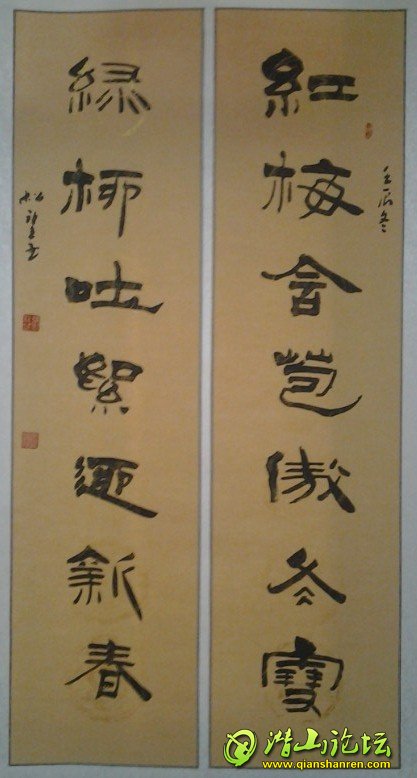 壬辰冬
紅梅含苞傲冬雪
緑柳吐絮迎新春
潜山论坛
www.qianshanren.com